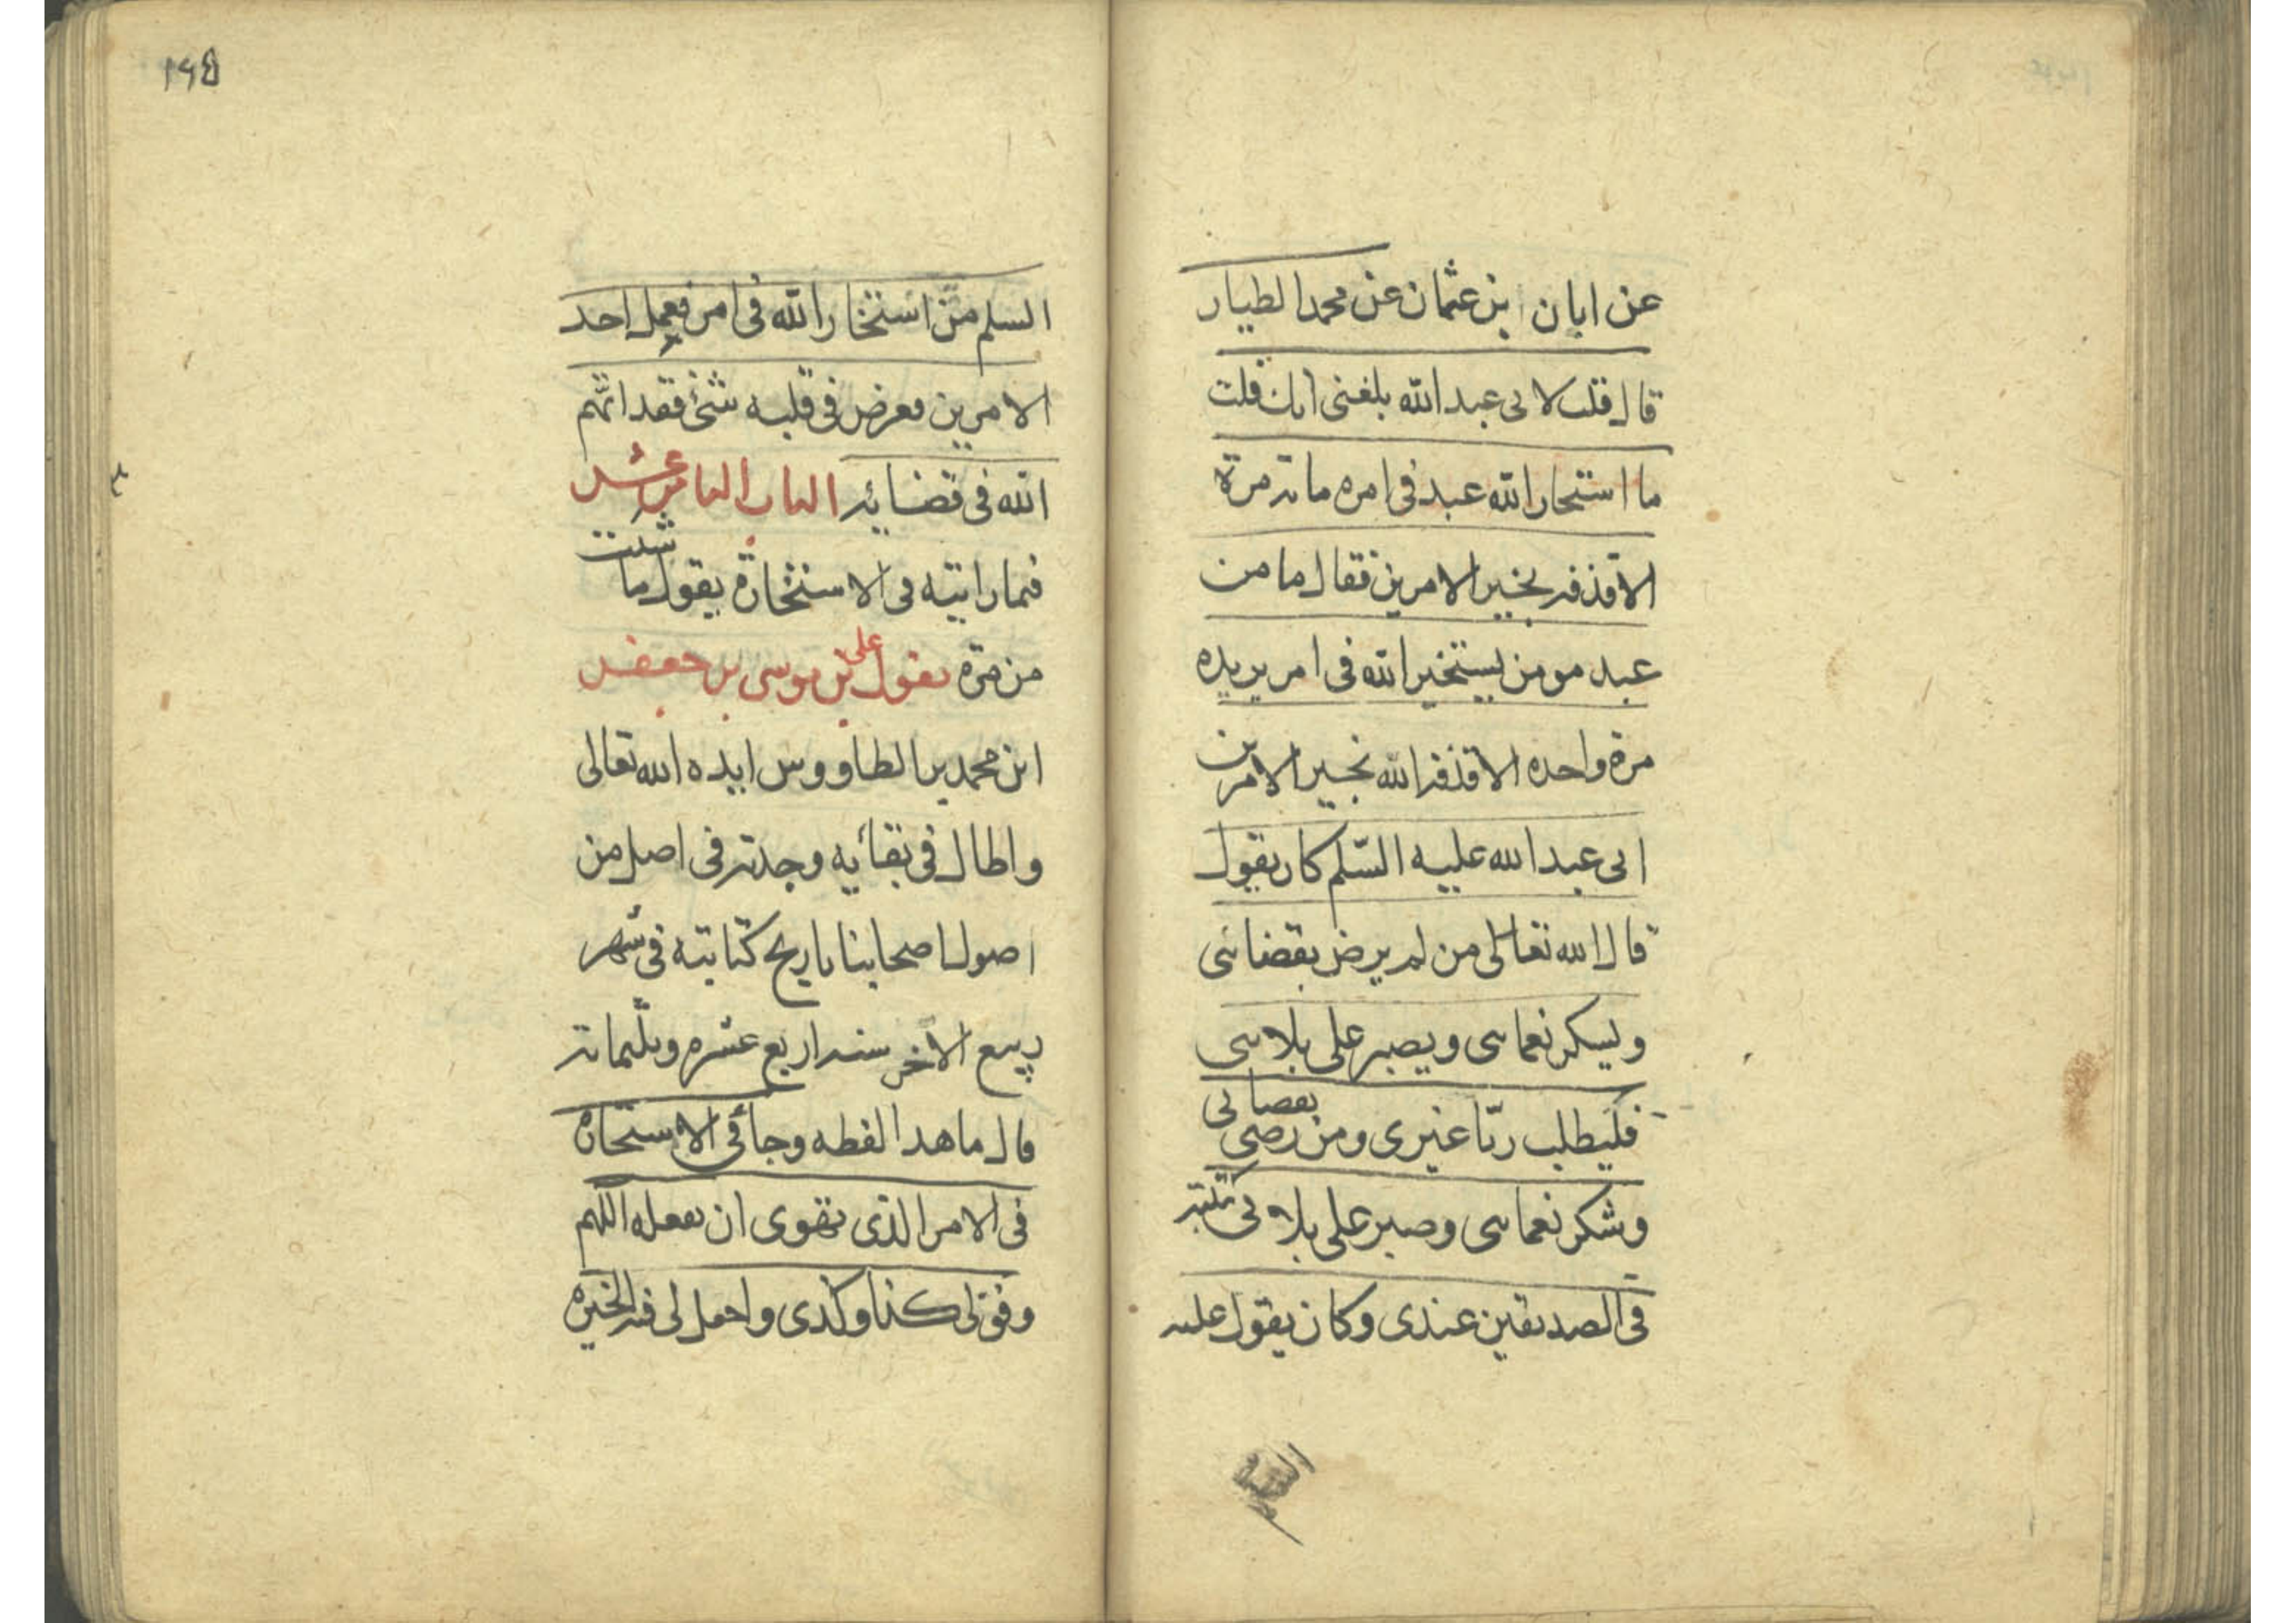 عن ابان بن عثمان عن محمد الطيار
قال قلت لابى عبد الله بلغنى انك قلت
ما استخار الله عبد فى امره مائة مرة
الا قذفه بخير الامرين فقال ما من
عبد مومن يستخير الله فى امر يريده
مرة واحده الا قذفه الله بخير الامرين
ابى عبد الله عليه السّلم كان يقول
قال الله تعالى من لم يرض بقضائى
ويشكر نعمائى ويصبر على بلائى
فليطلب ربّا غيرى ومن رضى بقضائى
وشكر نعمائى وصبر على بلائى كتبته
فى الصديقين عندى وكان يقول عليه
السلم
١٦٥
السلم من استخار الله فى امر فعمل احد
الامرين فعرض فى قلبه شئ فقد اتّهم
الله فى قضائه الباب العاشر
فيما رايته فى الاستخارة بقول ما شئت
من مرّة يقول على بن موسى بن جعفر
ابن محمد بن الطاووس ايده الله تعالى
واطال فى بقائه وجدته فى اصل من
اصول اصحابنا تاريخ كتابته فى شهر
ربيع الآخر سنة اربع عشره وثلثمائة
قال ما هذا لفظه وجا فى الاستخارة
فى الامر الذى تهوى ان تفعله اللهم
وفق لى كذا وكذى واجعل لى فيه الخيرة